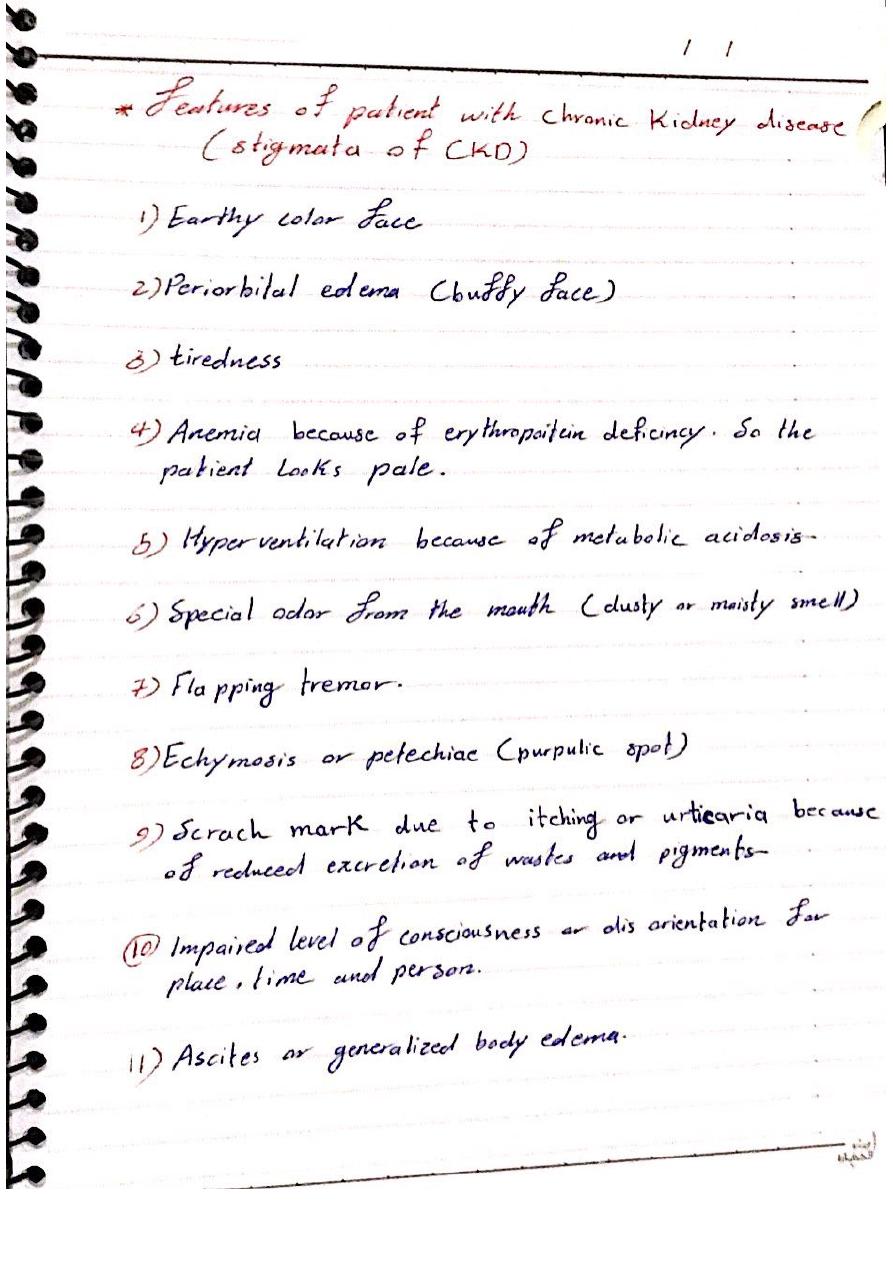 / /
* Features of patient with chronic kidney disease
(stigmata of CKD)
1) Earthy color face
2) Periorbital edema (buffy face)
3) tiredness
4) Anemia because of erythropoitein deficincy. So the
patient looks pale.
5) Hyperventilation because of metabolic acidosis-
6) Special odor from the mouth (dusty or moisty smell)
7) Flapping tremor.
8) Echymosis or petechiae (purpulic spot)
9) Scrach mark due to itching or urticaria because
of reduced excretion of wastes and pigments-
10 Impaired level of consciousness or disorientation for
place, time and person.
11) Ascites or generalized body edema.